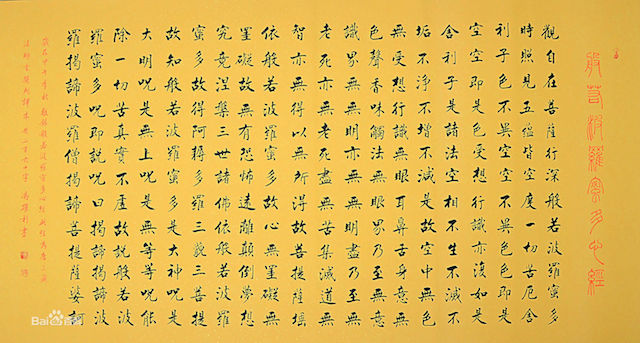 般若波羅蜜多心經
觀自在菩薩行深般若波羅蜜多
時照見五蘊皆空度一切苦厄舍
利子色不異空空不異色色即是
空空即是色受想行識亦復如是
舍利子是諸法空相不生不滅不
垢不淨不增不減是故空中無色
無受想行識無眼耳鼻舌身意無
色聲香味觸法無眼界乃至無意
識界無無明亦無無明盡乃至無
老死亦無老死盡無苦集滅道無
智亦無得以無所得故菩提薩埵
依般若波羅蜜多故心無罣礙無
罣礙故無有恐怖遠離顛倒夢想
究竟涅槃三世諸佛依般若波羅
蜜多故得阿耨多羅三藐三菩提
故知般若波羅蜜多是大神咒是
大明咒是無上咒是無等等咒能
除一切苦真實不虛故說般若波
羅蜜多咒即說咒曰揭諦揭諦波
羅揭諦波羅僧揭諦菩提薩婆訶
Bai百科